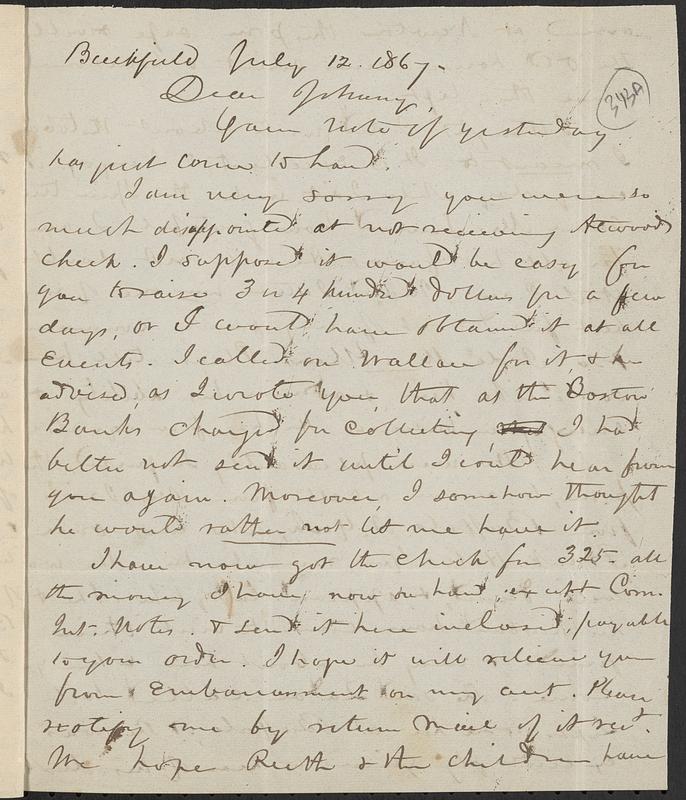 Buckfield July 12. 1867.
343A
Dear Johnny,
Your note of yesterday
has just come to hand.
I am very sorry you were so
much disappointed at not receiving Atwoods
check. I supposed it would be easy for
you to raise 3 or 4 hundred dollars for a few
days, or I would have obtained it at all
events. I called on Wallace for it, & he
advised, as I wrote you, that as the Boston
Banks charged for collecting, I had
better not send it until I could hear from
you again. Moreover, I somehow thought
he would rather not let me have it.
I have now got the check for 325- all
the money I have now on hand, except Com.
Int. Notes. & send it here inclosed, payable
to your order. I hope it will relieve you
from Embarrassment on my acct. Please
notify me by return Mail of its rect.
We hope Ruth & the children have